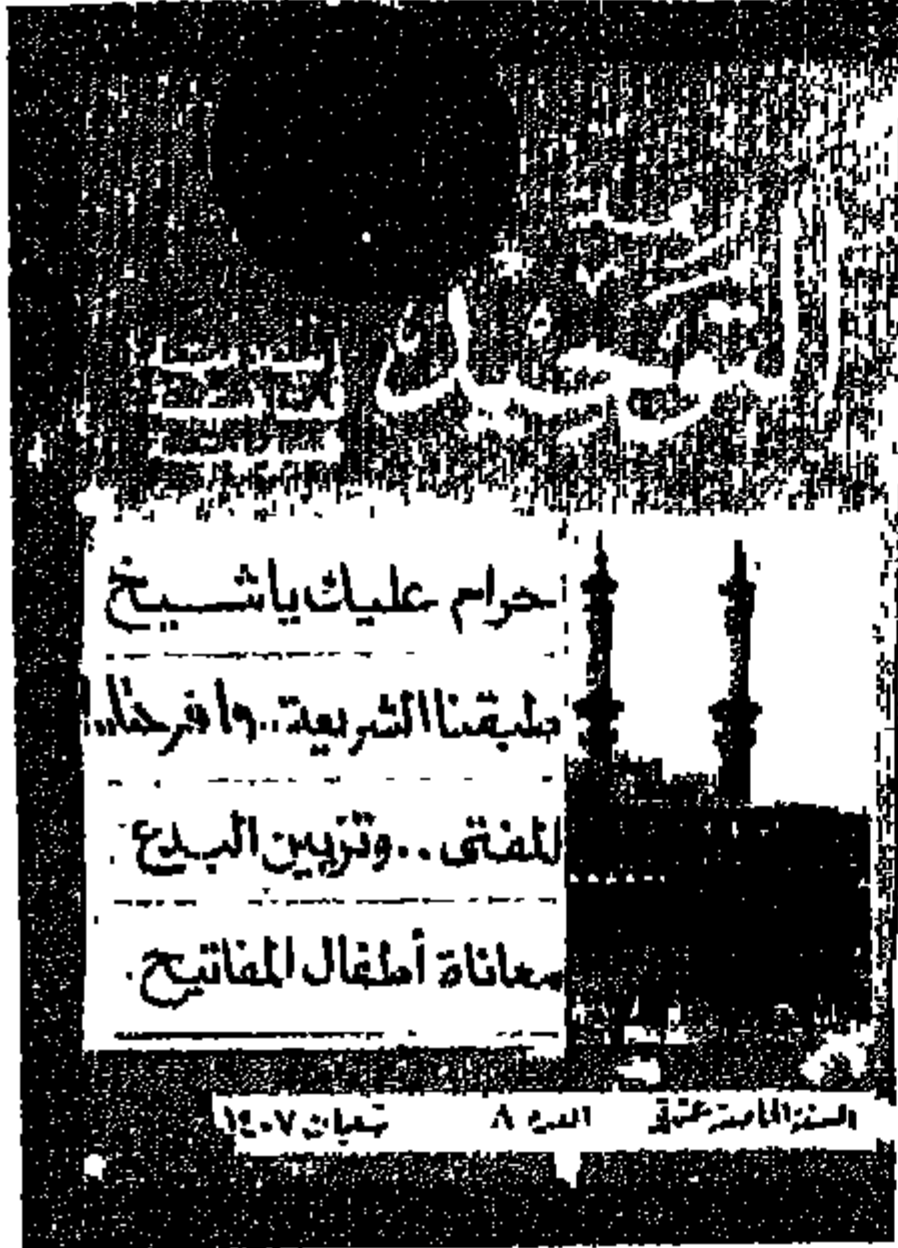 التوحيد
حرام عليك يا شيخ
طبقنا الشريعة.. وافرحنا..
المفتى.. وتزيين البدع
معاناة أطفال المفاتيح.
السنة الخامسة عشرة العدد ٨ شعبان ١٤٠٧